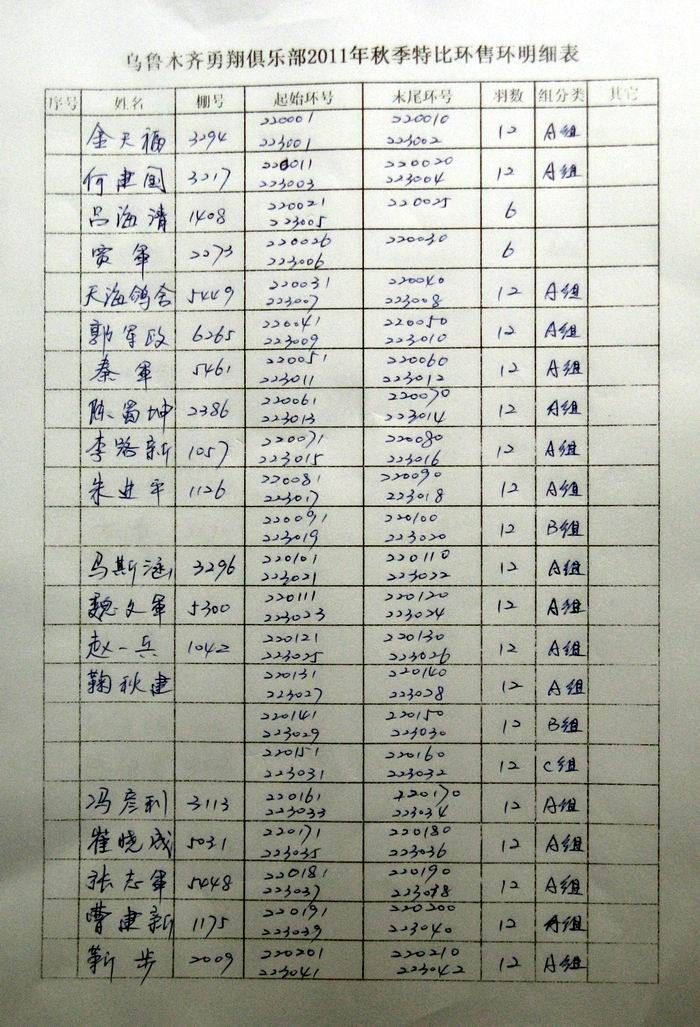 乌鲁木齐勇翔俱乐部2011年秋季特比环售环明细表
序号 姓名 棚号 起始环号 末尾环号 羽数 组分类 其它
220001 220010
金天福 3294 12 A组
223001 223002
220011 220020
何建国 3217 12 A组
223003 223004
220021 220025
吕海清 1408 6
223005
220026 220030
贾军 2273 6
223006
220031 220040
天海鸽舍 5449 12 A组
223007 223008
220041 220050
郭军政 6265 12 A组
223009 223010
220051 220060
秦军 5461 12 A组
223011 223012
220061 220070
陈蜀坤 2386 12 A组
223013 223014
220071 220080
李路新 1057 12 A组
223015 223016
220081 220090
朱进平 1126 12 A组
223017 223018
220091 220100
12 B组
223019 223020
220101 220110
马斯涵 3296 12 A组
223021 223022
220111 220120
魏文军 5300 12 A组
223023 223024
220121 220130
赵一兵 1042 12 A组
223025 223026
220131 220140
鞠秋建 12 A组
223027 223028
220141 220150
12 B组
223029 223030
220151 220160
12 C组
223031 223032
220161 220170
冯彦利 3113 12 A组
223033 223034
220171 220180
崔晓成 5031 12 A组
223035 223036
220181 220190
张志军 5448 12 A组
223037 223038
220191 220200
曹建新 1175 12 A组
223039 223040
220201 220210
靳步 2009 12 A组
223041 223042